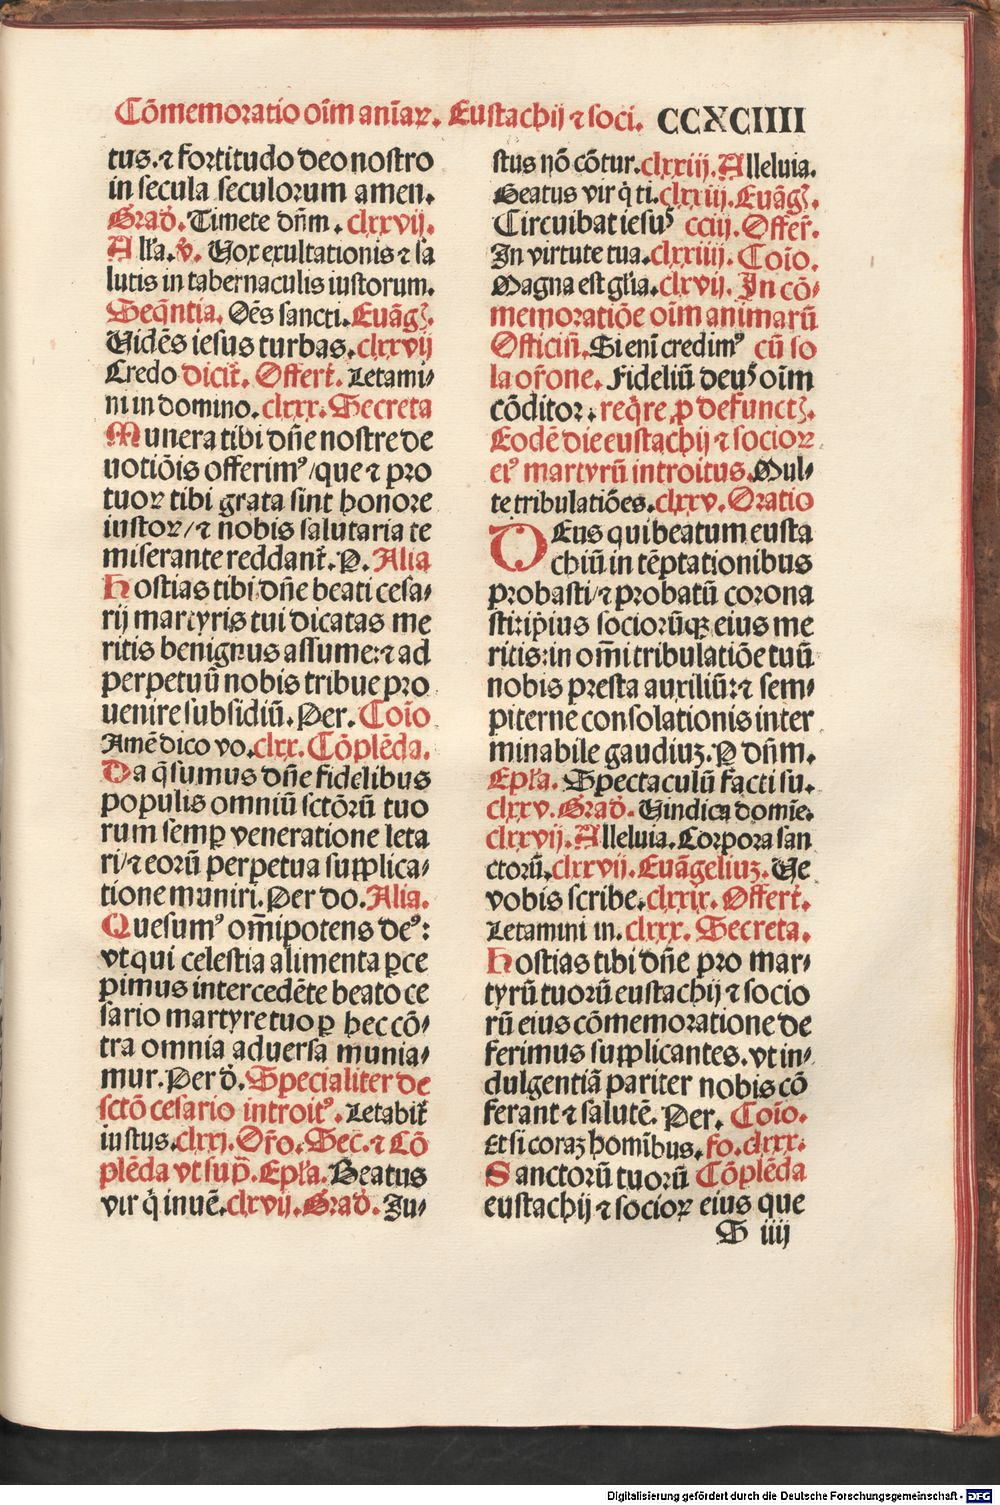 Cōmemoratio oīm aniāꝝ. Eustachij ⁊ soci. CCXCIIII
tus.⁊ fortitudo deo nostro
in secula seculorum amen.
Grad̄. Timete dn̄m. clxxvij.
Alla.℣. Vox exultationis ⁊ sa
lutis in tabernaculis iustorum.
Seqn̄tia. Oēs sancti. Euāgꝫ.
Vidēs iesus turbas. clxxvij
Credo dicit̄. Offert̄. Letami⸗
ni in domino. clxxx. Secreta
Munera tibi dn̄e nostre de
uotiōis offerimꝰ/que ⁊ pro
tuoꝝ tibi grata sint honore
iustoꝝ/⁊ nobis salutaria te
miserante reddant̄. P. Alia
Hostias tibi dn̄e beati cesa⸗
rij martyris tui dicatas me
ritis benignus assume:⁊ ad
perpetuū nobis tribue pro
uenire subsidiū. Per. Coīo
Amē dico vo. clxx. Cōplēda.
Da q̄sumus dn̄e fidelibus
populis omniū sctōrū tuo
rum semꝑ veneratione leta
ri/⁊ eorū perpetua supplica⸗
tione muniri. Per do. Alia.
Quesumꝰ om̄ipotens deꝰ:
vt qui celestia alimenta ꝑce
pimus intercedēte beato ce
sario martyre tuo ꝑ hec cō⸗
tra omnia aduersa munia⸗
mur. Per d̄. Specialiter de
sctō cesario introitꝰ. Letabit̄
iustus. clxxj. Or̄o. Sec. ⁊ Cō
plēda vt sup̄. Epl̄a. Beatus
vir q̄ inuē. clxvij. Grad̄. Ju⸗
stus nō cōtur. clxxiij. Alleluia.
Beatus vir q̄ ti. clxxiij. Euāgꝫ.
Circuibat iesuꝰ cciij. Offer̄.
In virtute tua. clxxiiij. Coīo.
Magna est gl̄ia. clxvij. In cō⸗
memoratiōe oīm animarū
Officiū. Si eni credimꝰ cū so
la or̄one. Fideliū deuꝰ oīm
cōditor. req̄re ꝓ defunctꝫ.
Eodē die eustachij ⁊ socioꝝ
eiꝰ martyrū introitus. Mul⸗
te tribulatiōes. clxxv. Oratio
DEus qui beatum eusta
chiū in tēptationibus
probasti/⁊ probatū corona
sti:ipius sociorūqꝫ eius me
ritis:in om̄i tribulatiōe tuū
nobis presta auxiliū:⁊ sem⸗
piterne consolationis inter
minabile gaudiuꝫ. P dn̄m.
Epl̄a. Spectaculū facti su.
clxxv. Grad̄. Vindica domīe.
clxxvij. Alleluia. Corpora san
ctorū. clxxvij. Euāgeliuꝫ. Ve
vobis scribe. clxxix. Offert̄.
Letamini in. clxxx. Secreta.
Hostias tibi dn̄e pro mar⸗
tyrū tuorū eustachij ⁊ socio
rū eius cōmemoratione de
ferimus supplicantes. vt in⸗
dulgentiā pariter nobis cō
ferant ⁊ salutē. Per. Coīo.
Et si coraꝫ homībus. fo. clxxx.
Sanctorū tuorū Cōplēda
eustachij ⁊ socioꝝ eius que
S iiij
Digitalisierung gefördert durch die Deutsche Forschungsgemeinschaft - DFG